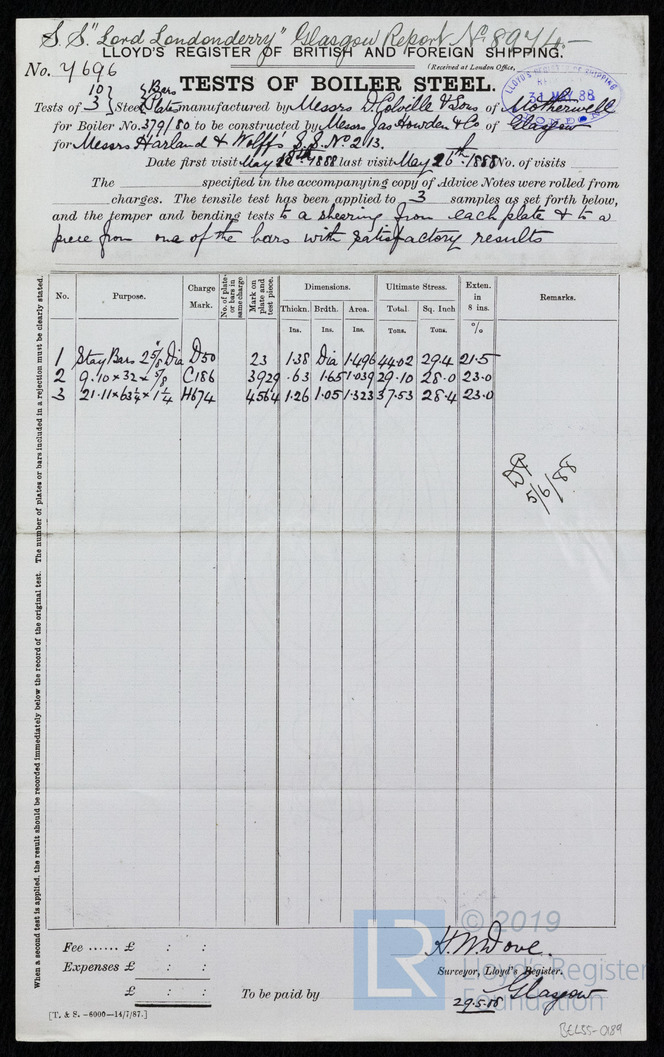 S.S. "Lord Londonderry" Glasgow Report No. 8974
LLOYD'S REGISTER OF BRITISH AND FOREIGN SHIPPING.
(Received at London Office,
No. 7696
LLOYD'S REGISTER OF SHIPPING
31 MAY 88
LONDON
TESTS OF BOILER STEEL.
Tests of 10 } Steel { Bars manufactured by Messrs D. Colville & Sons of Motherwell
3 Plates
for Boiler No. 379/80 to be constructed by Messrs Jas Howden & Co of Glasgow
for Messrs Harland & Wolff's S.S. No. 213.
Date first visit May 18th 1888 last visit May 26th 1888 No. of visits
The specified in the accompanying copy of Advice Notes were rolled from
charges. The tensile test has been applied to 3 samples as set forth below,
and the temper and bending tests to a shearing from each plate & to a
piece from one of the bars with satisfactory results
No. Purpose. Charge Mark. No. of plates or bars in same charge Mark on plate and test piece. Dimensions. Ultimate Stress. Exten. in 8 ins. Remarks.
Thickn. Brdth. Area. Total. Sq. Inch
Ins. Ins. Ins. Tons. Tons. %
1 Stay Bars 2 5/8" Dia D50 23 1.38 Dia 1.496 44.02 29.4 21.5
2 9.10 x 32 x 5/8 C186 3929 .63 1.65 1.039 29.10 28.0 23.0
3 21.11 x 63 1/4 x 1 1/4 H674 4564 1.26 1.05 1.323 37.53 28.4 23.0
5/6/88
When a second test is applied, the result should be recorded immediately below the record of the original test. The number of plates or bars included in a rejection must be clearly stated.
Fee ...... £ : :
Expenses £ : :
£ : :
To be paid by
H. M. Dove.
Surveyor, Lloyd's Register.
Glasgow
29.5.88
[T. & S. –6000–14/7/87.]
LR © 2019
Lloyd's Register
Foundation
BEL55-0189